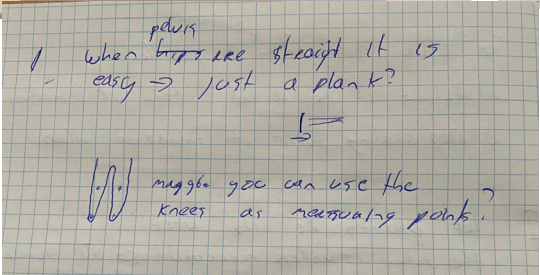 pelvis
1 when hips are straight it is
easy → just a plank?
maggbe you can use the
knees as measuaing points?